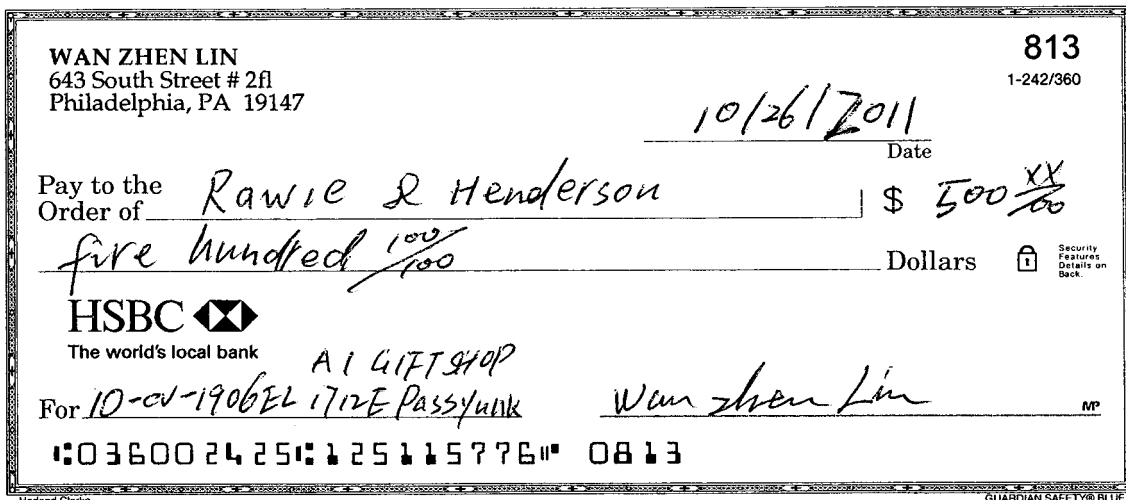 WAN ZHEN LIN
643 South Street # 2fl
Philadelphia, PA 19147
813
1-242/360
10/26/2011
Date
Pay to the Order of Rawle & Henderson $ 500 XX/00
five hundred 100/100 Dollars
Security Features Details on Back.
HSBC
The world's local bank
A1 GIFT SHOP
For 10-cv-1906EL 1712E Passyunk Wan zhen Lin MP
⑆036002425⑆125115776⑈ 0813
GUARDIAN SAFETY® BLUE